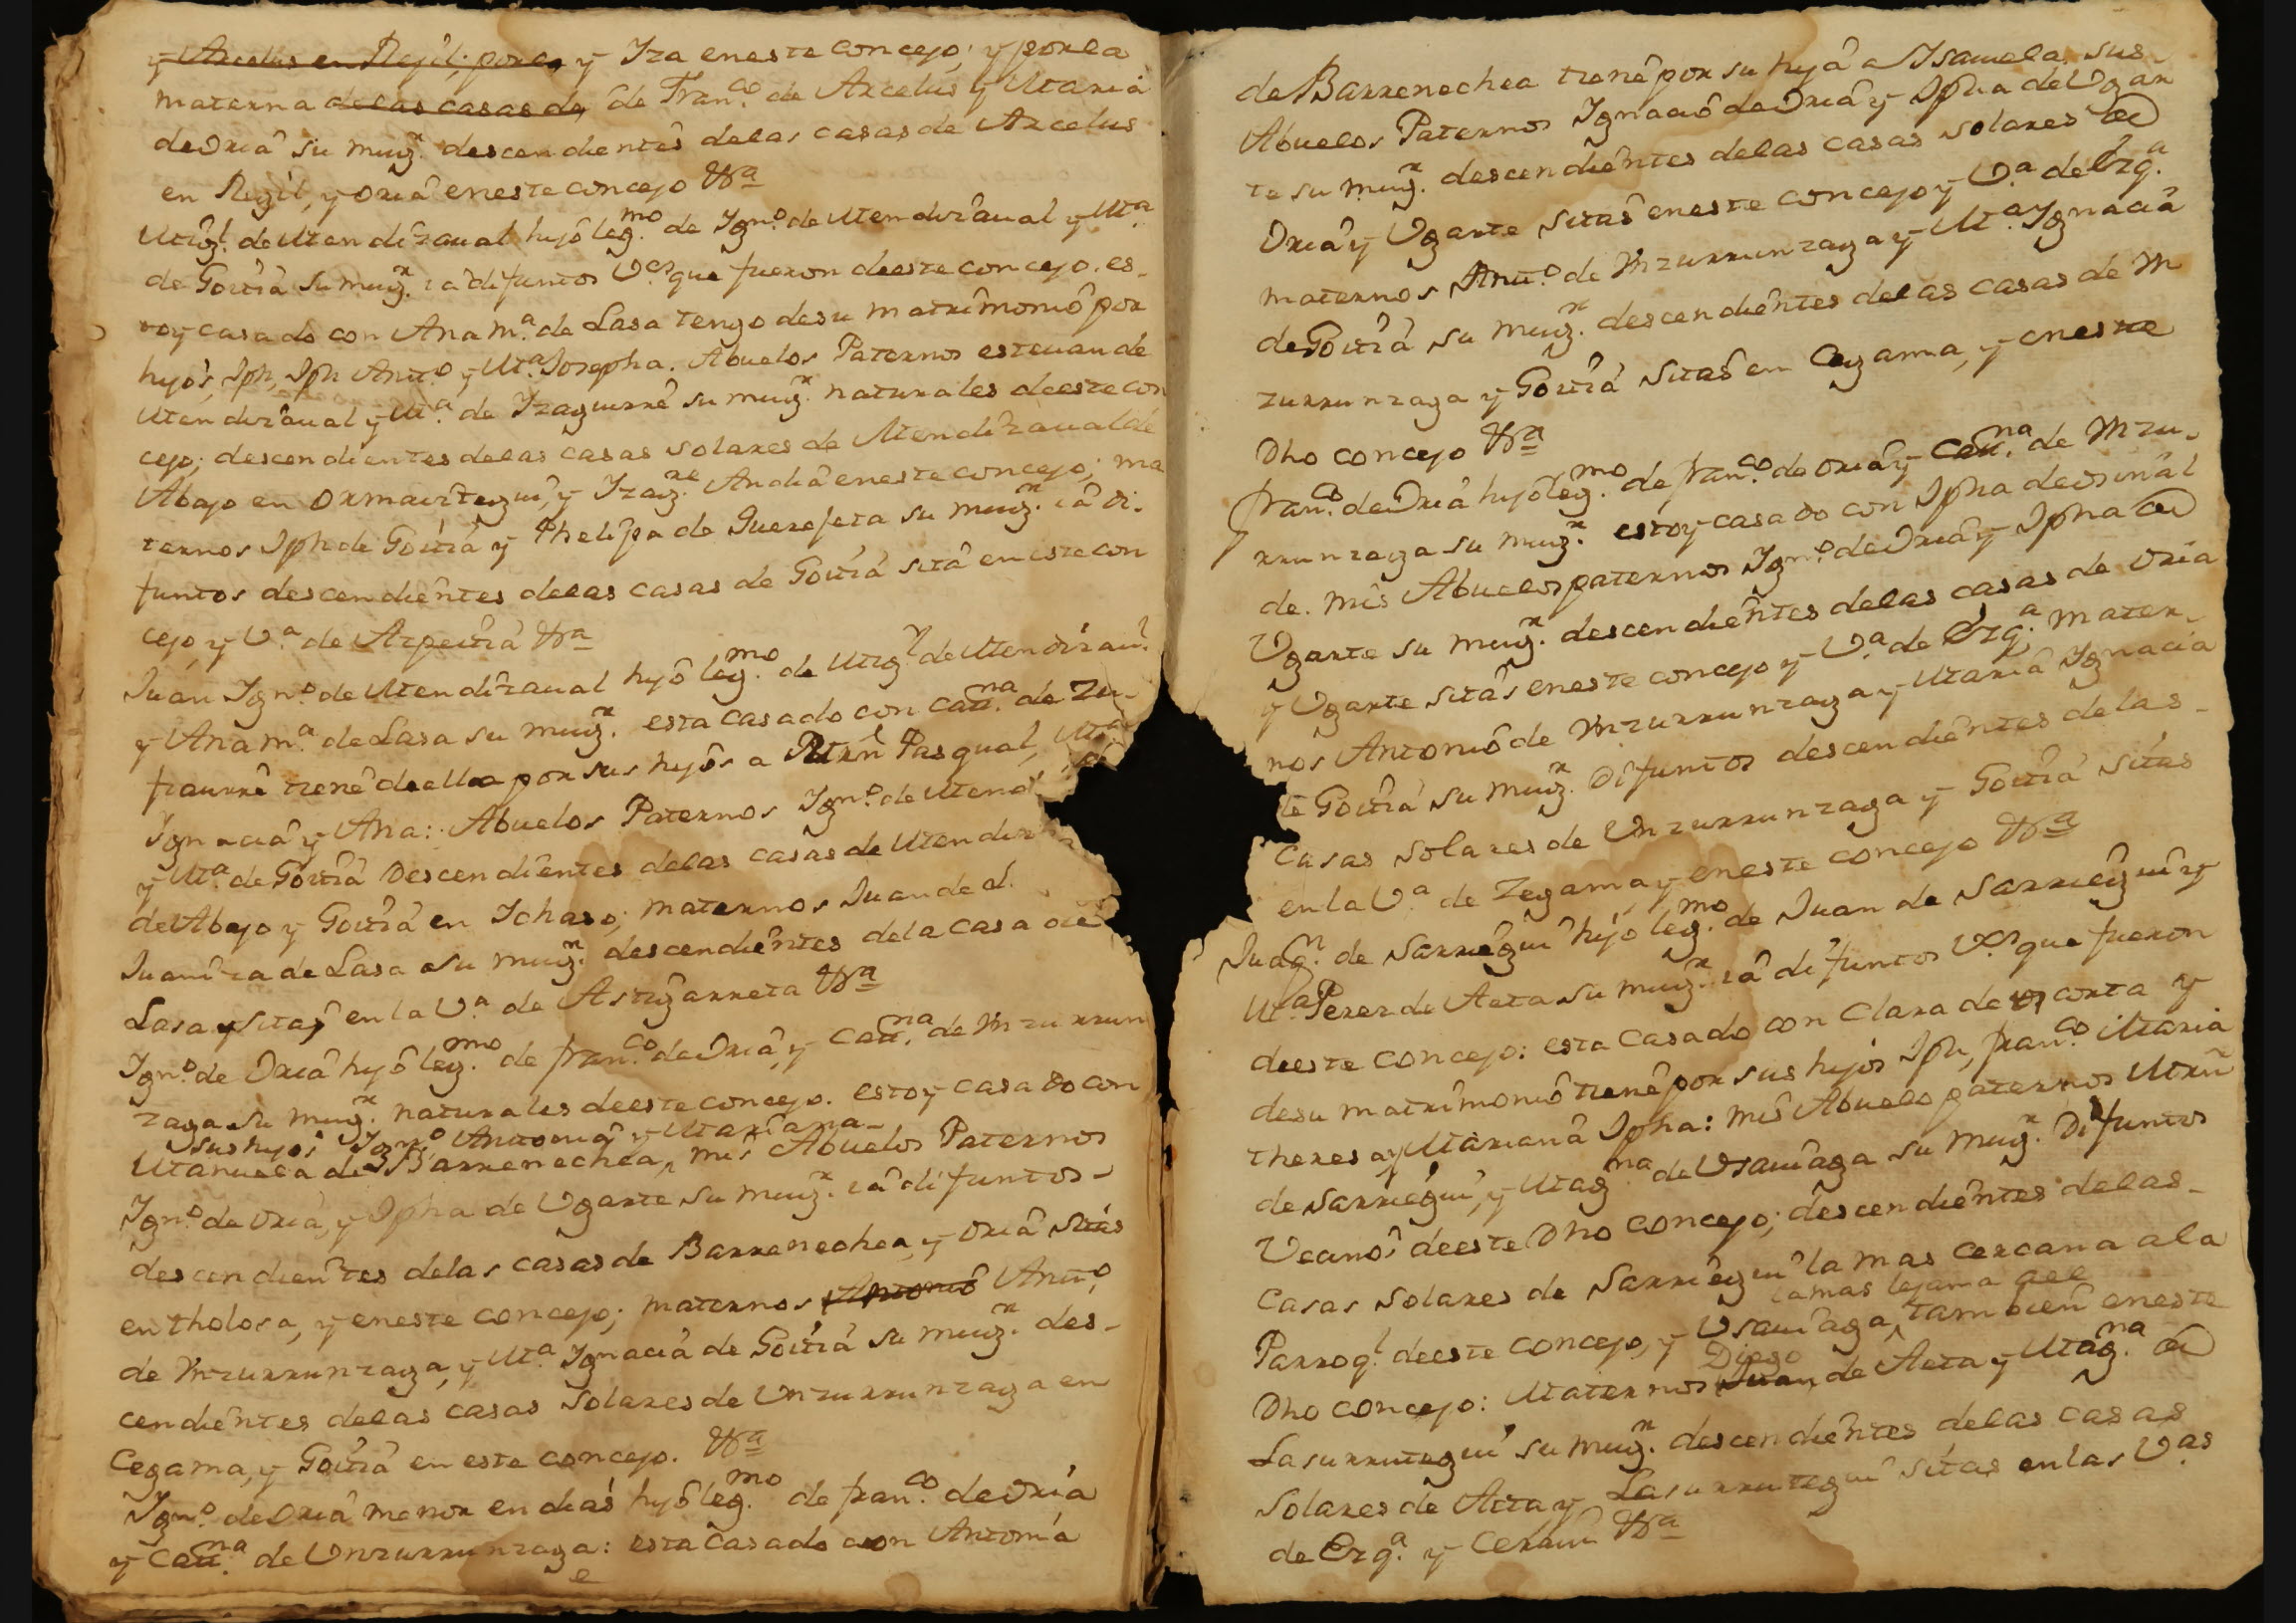 y Arcelus en Regil; por la y Iza eneste concejo; y por la
materna delas casas de de Fran.co de Arcelus y Maria
de Oria su mug.r descendientes delas casas de Arcelus
en Regil, y oria eneste concejo &.a
Mig.l de Mendizaual hijo leg.mo de Ign.o de Mendizaual y M.a
de Goitia su mug.r ia difuntos V.os que fueron deeste concejo. es-
toy casado con Ana M.a de Lasa tengo desu matrimonio por
hijos, Iph, Iph Ant.o y M.a Josepha. Abuelos Paternos esteuan de
Mendizaual y M.a de Yzaguirre su mug.r naturales deeste con
cejo; descendientes delas casas solares de Mendizaual de
Abajo en Ormaiztegui, y Izag.re Andia eneste concejo; ma
ternos Iph de Goitia y Phelipa de Guerejeta su mug.r ia di-
funtos descendientes delas casas de Goitia sita en este con
cejo y V.a de Azpeitia &.a
Juan Ign.o de Mendizaual hijo leg.mo de Mig.l de Mendizau.l
y Ana M.a de Lasa su mug.r esta casado con Cat.na de Zu-
fiaurre tiene de ella por sus hijos a Mrn Pasqual, M.a
Ignacia y Ana: Abuelos Paternos Ign.o de Mend
y M.a de Goitia Descendientes delas casas de Mendiz
de Abajo y Goitia en Ichaso; maternos Juan de
Juaniza de Lasa su mug.r descendientes dela casa de
Lasa y sitas en la V.a de Astigarreta &.a
Ign.o de Oria hijo leg.mo de fran.co de Oria, y Cat.na de Vnzurrun
zaga su mug.r naturales deeste concejo. estoy casado con
sus hijos Ign.o Antonia y Mariana-
Manuela de Barrenechea, mis Abuelos Paternos
Ign.o de oria, y Ipha de Ugarte su mug.r ia difuntos-
descendientes delas casas de Barrenechea, y oria sitas
en tholosa, y eneste concejo; maternos Antonio Ant.o
de Vnzurrunzaga, y M.a Ignacia de Goitia su mug.r des-
cendientes delas casas solares de Vnzurrunzaga en
Cegama, y Goitia en este concejo. &.a
Ign.o de Oria menor en dias hijo leg.mo de fran.co de Oria
y Cat.na de Vnzurrunzaga: esta casado con Antonia
de Barrenechea tiene por su hija a Isauela. sus
Abuelos Paternos Ignacio de Oria y Ipha de Ugar
te su mug.r descendientes delas casas solares de
Oria y Ugarte sitas eneste concejo y V.a de Ezq.a
maternos Ant.o de Vnzurrunzaga y M.a Ignacia
de Goitia su mug.r descendientes delas casas de Vn
zurrunzaga y Goitia sitas en Cegama, y eneste
Dho concejo &.a
fran.co de Oria hijo leg.mo de fran.co de oria y Cat.na de Vnzu-
rrunzaga su mug.r estoy casado con Ipha de osinal
de. mis Abuelos paternos Ign.o de Oria y Ipha de
Ugarte su mug.r descendientes delas casas de oria
y Ugarte sitas eneste concejo y V.a de Ezq.a mater-
nos Antonio de Vnzurrunzaga y Maria Ignacia
de Goitia su mug.r Difuntos descendientes delas-
Casas solares de Vnzurrunzaga y Goitia sitas
en la V.a de Zegama, y eneste concejo &.a
Juaq.n de Sarriegui hijo leg.mo de Juan de Sarriegui y
M.a Perez de Aeta su mug.r ia difuntos V.os que fueron
deeste concejo: esta casado con Clara de corta y
desu matrimonio tiene por sus hijos Iph, fran.co Maria
theresa, y Mariana Ipha: mis Abuelo paternos Mrn
de Sarriegui, y Mag.na de Vsauiaga su mug.r Difuntos
Vecinos deeste Dho concejo; descendientes delas-
Casas Solares de Sarriegui la mas cercana a la
Parroq.l deeste concejo, y Vsauiaga, tambien eneste
la mas lejana del
Dho concejo: Maternos Juan Diego de Aeta y Mag.na de
Lasurrutegui su mug.r descendientes delas casas
Solares de Aeta y Lasurrutegui sitas en las V.as
de Ezq.a y Cerain &.a